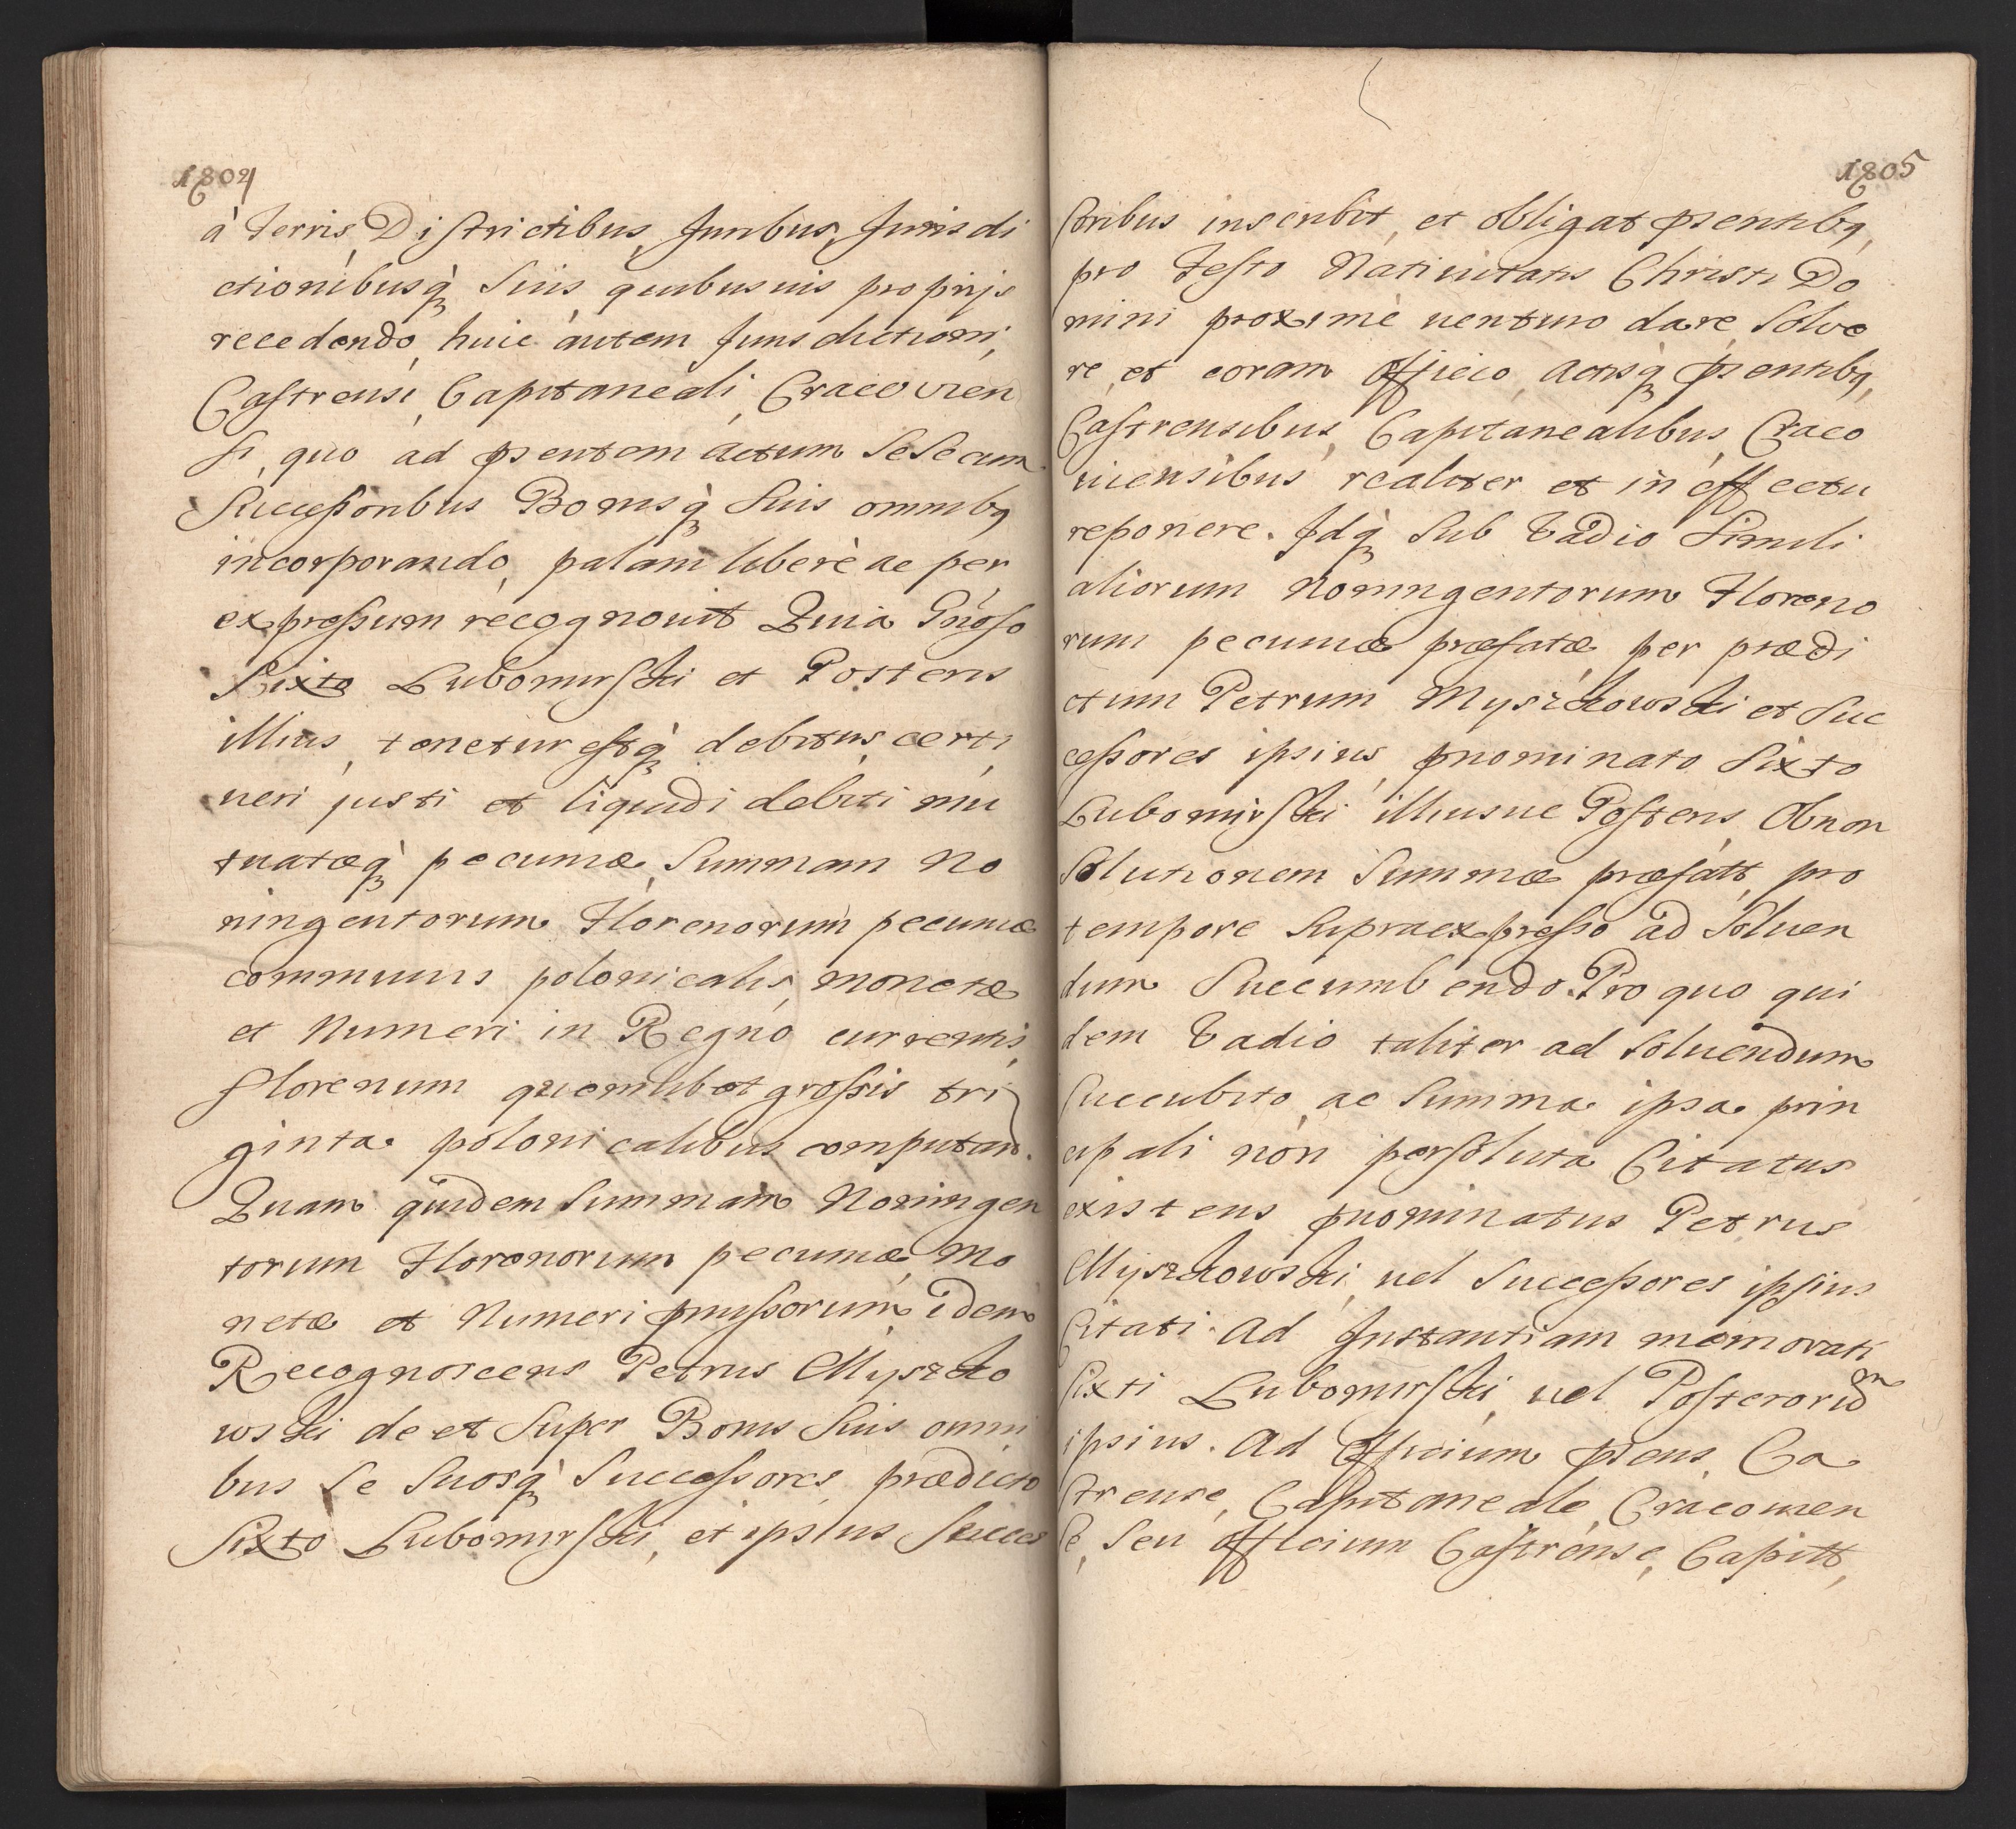 1804
à Terris, Districtibus, Juribus, Jurisdi
ctionibusq̀ Suis quibusuis proprijs
recedendo, huic autem Jurisdictioni,
Castrensi, Capitaneali, Cracovien
si, quo ad pսentem actum Se Se cum
Successoribus Bonisq̀ Suis omnibq
incorporando, palam liberè ac per
expressum recognouit Quia Gnoso
Sixto Lubomirski et Posteris
illius, tenetur estq̀ debitus, certi,
ueri justi et liquidi debiti mu
tuatæq̀ pecuniæ, Summam No
ningentorum Florenorum pecuniæ
communis polonicalis, monetæ
et Numeri in Regno currentis,
florenum quemlibet grossis tri
ginta polonicalibus computan.
Quam quidem Summam Noningen
torum Florenorum pecuniæ, Mo
netæ et Numeri pmissorum, idem
Recognoscens Petrus Myszko
wski de et Super Bonis Suis omni
bus Se Suosq̀ Successores, prædicto
Sixto Lubomirski, et ipsius Succes
1805
soribus inscribit, et obligat psentibq,
pro Festo Natiuitatis Christi Do
mini proximè uenturo dare, Solve
re, et coram Officio, actisq̀ psentibq,
Castrensibus, Capitanealibus, Craco
uiensibus realiter et in effectu
reponere. Jdq̀ Sub Vadio Simili
aliorum Noningentorum Floreno
rum pecuniæ præfatæ, per prædi
ctum Petrum Myszkowski et Suc
cessores ipsius, pnominato Sixto
Lubomirski illiusue Posteris Ob non
Solutionem Summæ præfatt, pro
tempore Supraexpresso ad Soluen
dum Succumbendo. Pro quo qui
dem Vadio taliter ad Soluendum
Succubito, ac Summa ipsa prin
cipali non persoluta Citatus
existens pnominatus Petrus
Myszkowski, uel Successores ipsius
Citati. Ad Jnstantiam memorati
Sixti Lubomirski, uel Posterorum
ipsius. Ad Officium psens, Ca
strense, Capitaneale, Cracouien
se, Seu Officium Castrense, Capitt,